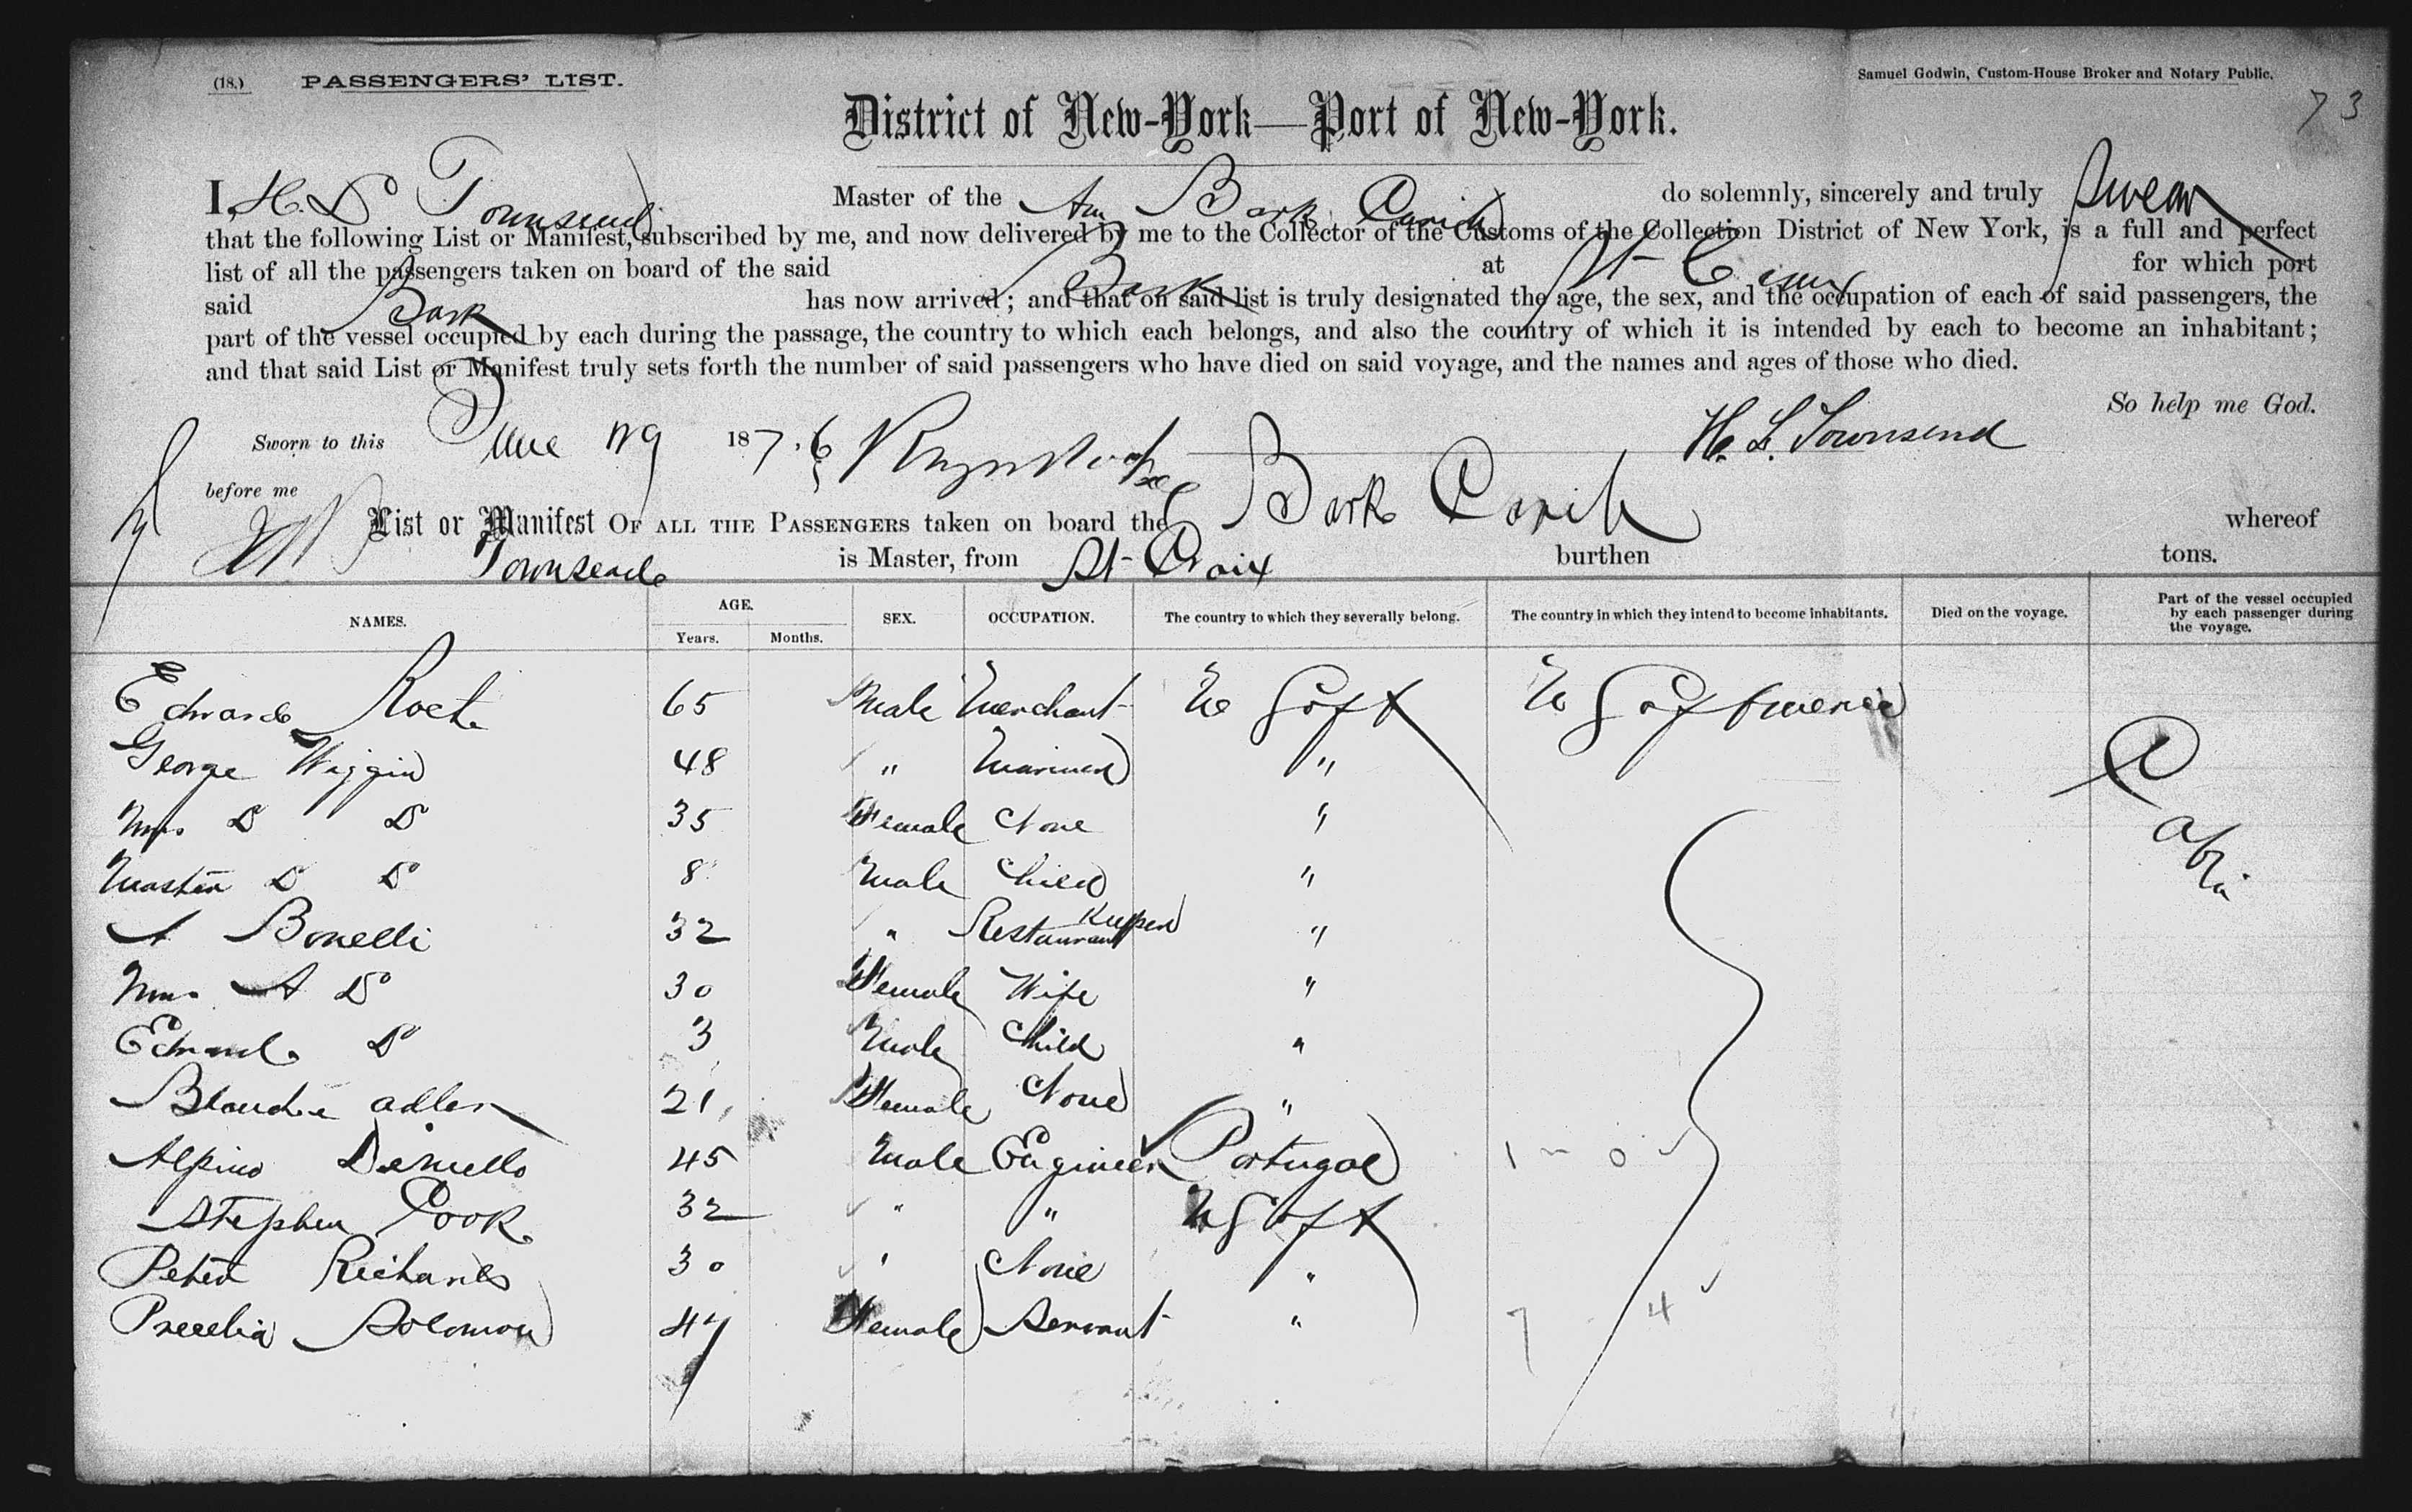 (18.) PASSENGERS' LIST.
Samuel Godwin, Custom-House Broker and Notary Public.
73
District of New-York—Port of New-York.
I, H. L. Townsend Master of the Am Bark do solemnly, sincerely and truly swear
that the following List or Manifest, subscribed by me, and now delivered by me to the Collector of the Customs of the Collection District of New York, is a full and perfect
list of all the passengers taken on board of the said Bark at St Croix for which port
said Bark has now arrived; and that on said list is truly designated the age, the sex, and the occupation of each of said passengers, the
part of the vessel occupied by each during the passage, the country to which each belongs, and also the country of which it is intended by each to become an inhabitant;
and that said List or Manifest truly sets forth the number of said passengers who have died on said voyage, and the names and ages of those who died.
So help me God.
Sworn to this June 19 1876 H. L. Townsend
before me
List or Manifest OF ALL THE PASSENGERS taken on board the Bark whereof
Townsend is Master, from St Croix burthen tons.
NAMES. AGE. Years. Months. SEX. OCCUPATION. The country to which they severally belong. The country in which they intend to become inhabitants. Died on the voyage. Part of the vessel occupied by each passenger during the voyage.
Edward 65 Male Merchant U S of A U S of America Cabin
George Wiggin 48 " Mariner "
Mrs Do Do 35 Female None "
Master Do Do 8 Male Child "
A Bonelli 32 " Restaurant Keeper "
Mrs A Do 30 Female Wife "
Edward Do 3 Male Child "
Blanche Adler 21 Female None "
45 Male Engineer Portugal 1 - 0
Stephen Cook 32 " " U S of A
Peter Richards 30 " None "
Solomon 47 Female Servant " 7 4